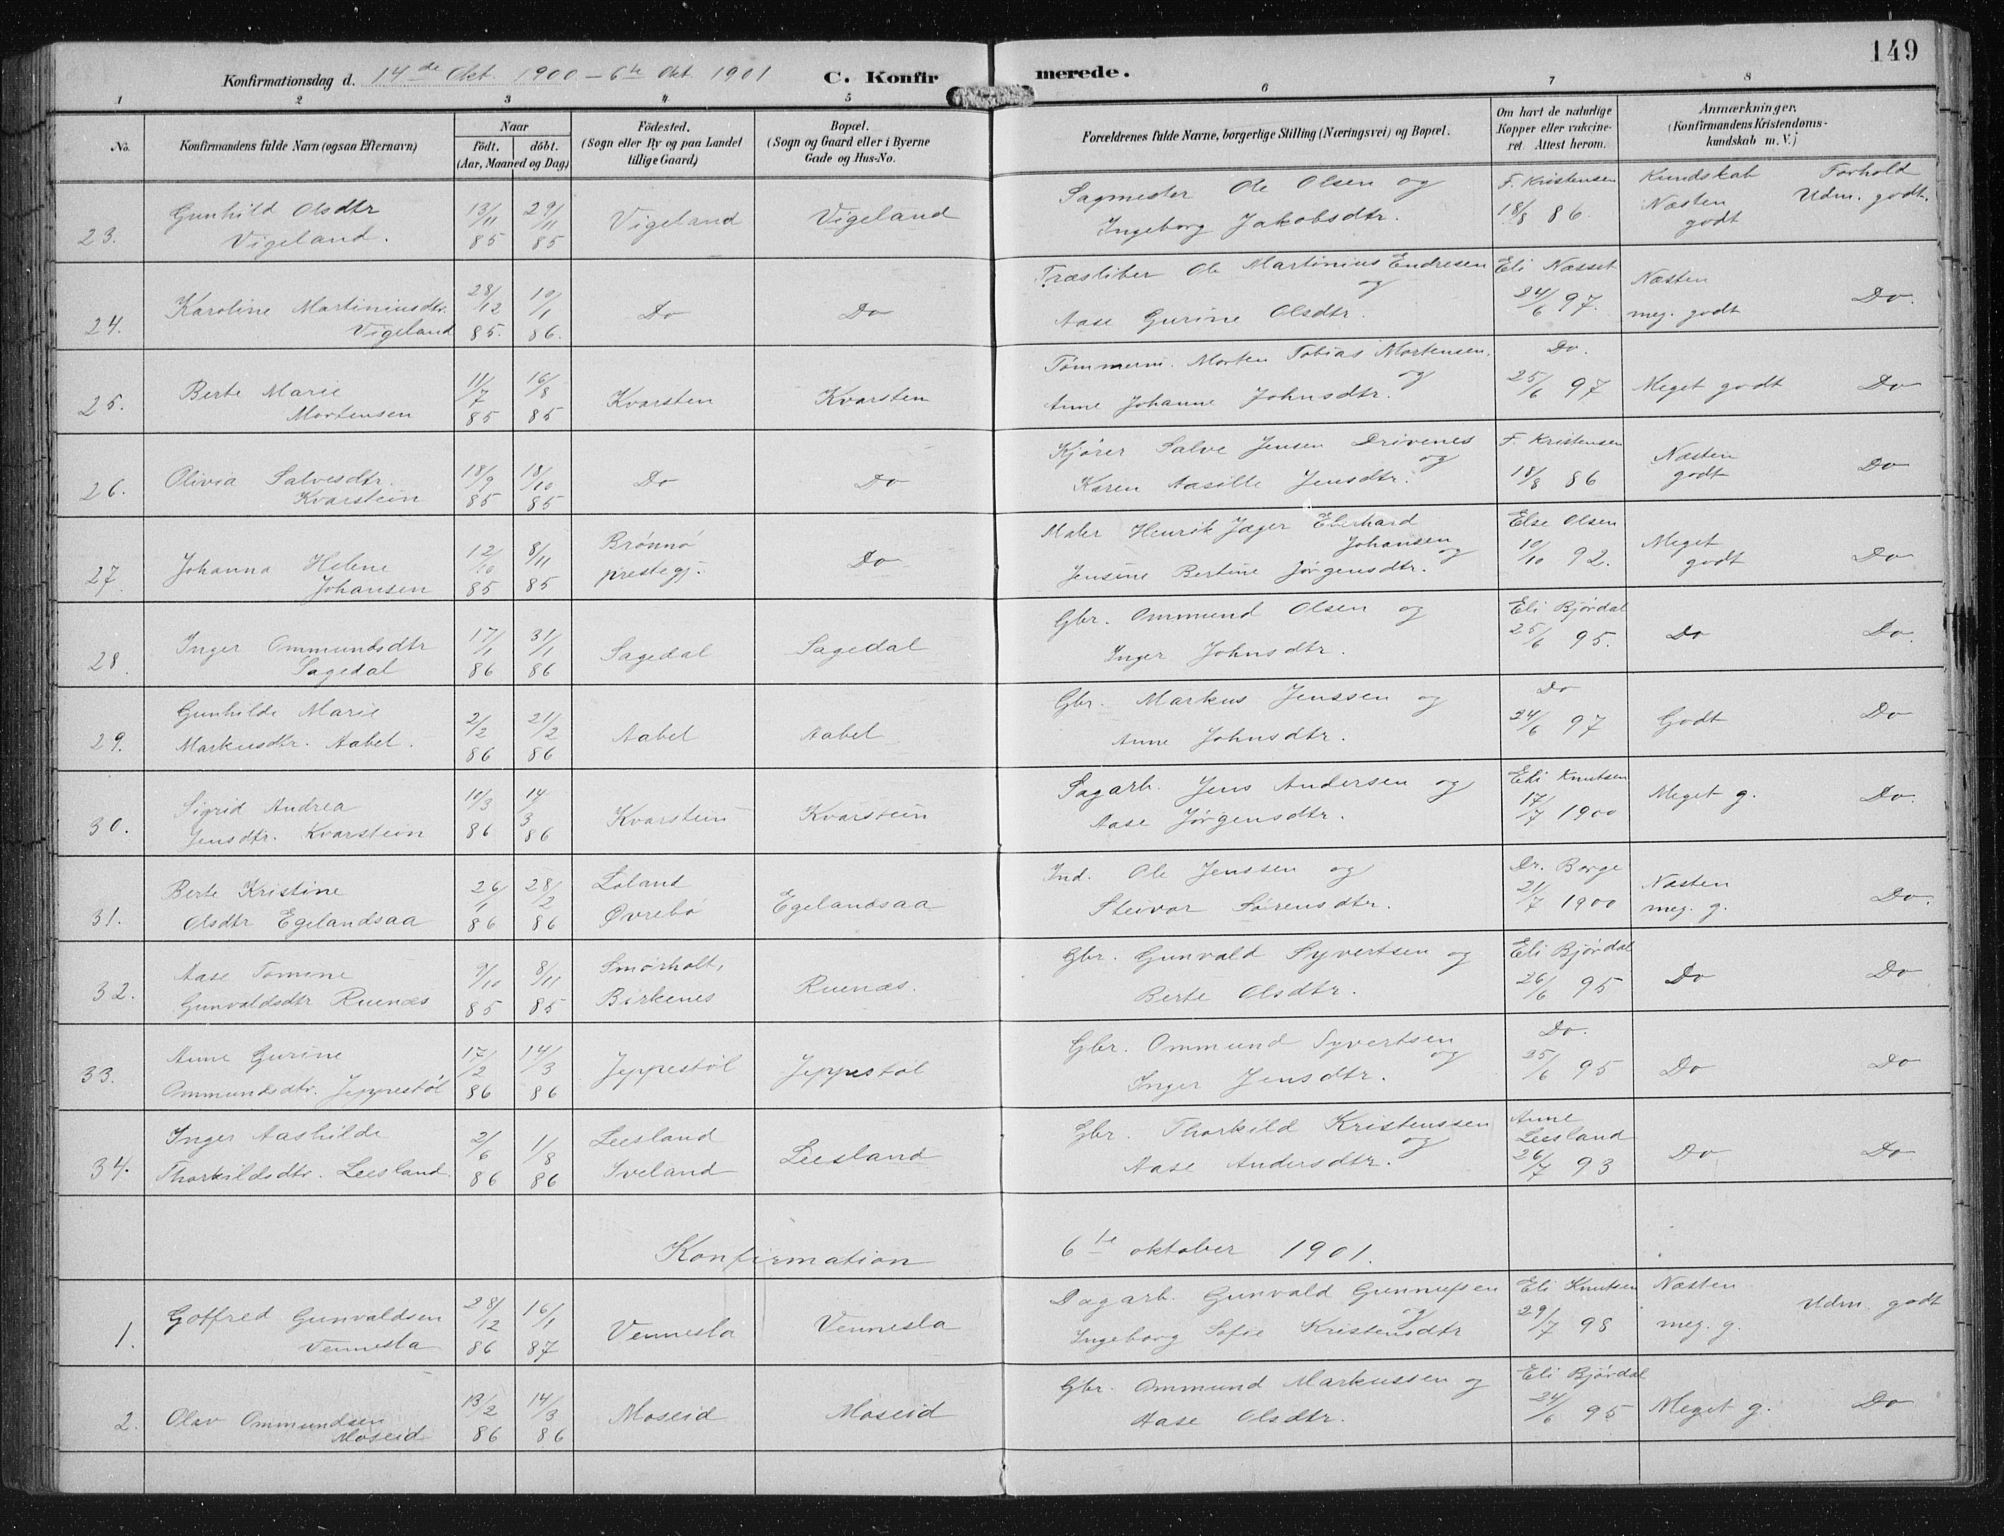 149
Konfirmationsdag d. 14de Okt. 1900 – 6te Okt. 1901 C. Konfirmerede.
1 2 3 4 5 6 7 8
No. Konfirmandens fulde Navn (ogsaa Efternavn) Naar Födt. döbt. (Aar, Maaned og Dag) Födested. (Sogn eller By og paa Landet tillige Gaard) Bopæl. (Sogn og Gaard eller i Byerne Gade og Hus-No. Forældrenes fulde Navne, borgerlige Stilling (Næringsvei) og Bopæl. Om havt de naturlige Kopper eller vakcineret. Attest herom. Anmærkninger. (Konfirmandens Kristendomskundskab m. V.)
Kundskab Forhold
23. Gunhild Olsdtr Vigeland. 13/11 85 29/11 85 Vigeland Vigeland Sagmester Ole Olsen og Ingeborg Jakobsdtr. F. Kristensen 18/8 86. Næsten godt Udm. godt.
24. Karoline Martiniusdtr. Vigeland 28/12 85. 10/1 86. Do Do Træsliber Ole Martinius Endresen og Aase Gurine Olsdtr. Eli Næsset 24/6 97. Næsten meg. godt Do.
25. Berte Marie Mortensen 11/7 85 16/8 85 Kvarsten Kvarsten Tømmerm. Morten Tobias Mortensen. og Anne Johanne Johnsdtr. Do. 25/6 97 Meget godt Do
26. Olivia Salvesdtr. Kvarstein 18/9 85 18/10 85 Do Do Kjører Salve Jensen Drivenes og Karen Aasille Jensdtr. F. Kristensen 18/8 86 Næsten godt Do
27. Johanna Helene Johansen 12/10 85 8/11 85 Brønnø prestegj. Do Maler Henrik Jæger Eberhard Johansen og Jensine Bertine Jørgensdtr. Else Olsen 10/10 92. Meget godt Do
28. Inger Ommundsdtr Sagedal 17/1 86 31/1 86 Sagedal Sagedal Gbr. Ommund Olsen og Inger Johnsdtr. Eli Bjørdal 25/6 95. Do Do.
29. Gunhilde Marie Markusdtr. Aabel. 2/2 86 21/2 86 Aabel Aabel Gbr. Markus Jenssen og Anne Johnsdtr. Do 24/6 97 Godt Do
30. Sigrid Andrea Jensdtr. Kvarstein 10/3 86 14/3 86 Kvarstein Kvarstein Sagarb. Jens Andersen og Aase Jørgensdtr. Eli Knutsen 17/7 1900 Meget g. Do.
31. Berte Kristine Olsdtr Egelandsaa 26/1 86 28/2 86 Loland Øvrebø Egelandsaa Ind. Ole Jenssen og Steivor Sørensdtr. Dr. Borge 21/7 1900 Næsten meg. g. Do.
32. Aase Tomine Gunvaldsdtr Ruenæs 9/10 85 8/11 85 Smørholt, Birkenes Ruenæs. Gbr. Gunvald Syvertsen og Berte Olsdtr. Eli Bjørdal 26/6 95 Do Do
33. Anne Gurine Ommundsdtr. Jeppestøl 17/2 86 14/3 86 Jeppestøl Jeppestøl Gbr. Ommund Syvertsen og Inger Jensdtr. Do. 25/6 95 Do Do
34. Inger Aashilde Thorkildsdtr. Leesland 2/6 86 1/8 86 Leesland Iveland Leesland Gbr. Thorkild Kristenssen og Aase Andersdtr. Anne Leesland 26/7 93 Do Do
Konfirmation 6te oktober 1901.
1. Gotfred Gunvaldsen Vennesla 28/12 86 16/1 87 Vennesla Vennesla Dagarb. Gunvald Gunnufsen og Ingeborg Sofie Kristensdtr Eli Knutsen 29/7 98 Næsten meg. g. Udm. godt
2. Olav Ommundsen Moseid 13/2 86 14/3 86 Moseid Moseid Gbr. Ommund Markussen og Aase Olsdtr. Eli Bjørdal 24/6 95 Meget g. Do